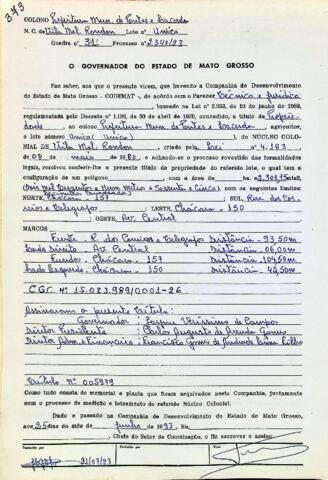 373
COLONO Prefeitura Mun. de Pontes e Lacerda
N. C. de Vila Mal. Rondon Lote nº Único
Quadra nº 31 Processo nº 2.340/93
O GOVERNADOR DO ESTADO DE MATO GROSSO
Faz saber, aos que a presente virem, que havendo a Companhia de Desenvolvimento
do Estado de Mato Grosso - CODEMAT -, de acôrdo com o Parecer Técnico e Jurídico
baseado na Lei nº 2.933, de 10 de junho de 1969,
regulamentada pelo Decreto nº 1.138, de 30 de abril de 1970, concedido, a título de Proprie
dade, ao colono Prefeitura Mun. de Pontes e Lacerda, agricultor,
o lote nº Único (Único) do NÚCLEO COLONIAL
DE Vila Mal. Rondon, criado pela Lei nº 4.183,
de 08 de maio 1980, e achando-se o processo revestido das formalidades
legais, resolveu conferir-lhe o presente título de propriedade do referido lote, o qual tem a
configuração de um polígono com a área de 2.301,75 m2,
(Dois mil Trezentos e Hum Metros e Setenta e Cinco) com os seguintes limites:
NORTE, Chácara - 157 SUL, Rua dos Cor
reios e Telegrafos LESTE, Chácara - 150
OESTE, Av. Central
MARCOS
Frente - R. dos Correios e Telegrafos Distância - 93,50m
Lado Direito - Av. Central Distância - 06,00m
Fundos - Chácara - 157 Distância - 104,50m
Lado Esquerdo - Chácara - 150 Distância - 42,50m
C.G.C. Nº 15.023.989/0001-26
Assinaram o presente Título:
Governador: Jayme Veríssimo de Campos
Diretor Presidente: Carlos Augusto de Arruda Gomes
Diretor Adm. e Financeiro: Francisco Gomes de Andrade Lima Filho
Título Nº 005979
Como tudo consta do memorial e planta que ficam arquivados nesta Companhia, juntamente
com o processo de medição e loteamento do referido Núcleo Colonial.
Dado e passado na Companhia de Desenvolvimento do Estado de Mato Grosso,
aos 25 dias do mês de junho de 1993. Eu,
Chefe do Setor de Colonização, fiz escrever e assino.
21/07/93